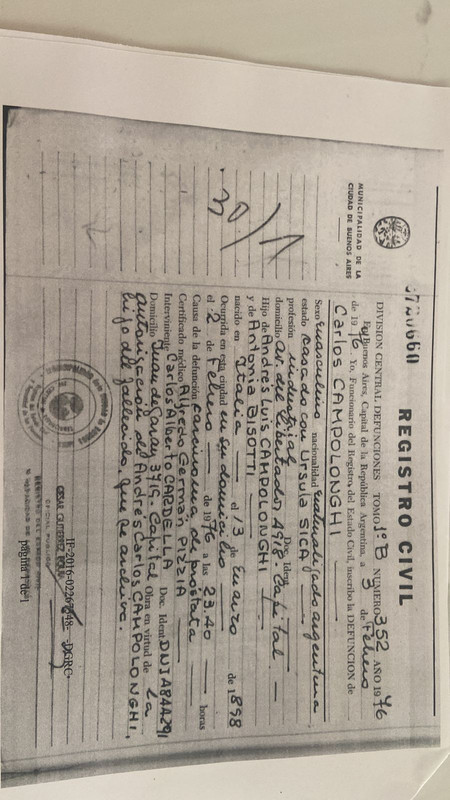 MUNICIPALIDAD DE LA
CIUDAD DE BUENOS AIRES
REGISTRO CIVIL
DIVISION CENTRAL DEFUNCIONES TOMO 1º B NUMERO 352 AÑO 1976
En Buenos Aires, Capital de la República Argentina, a 3 de Febrero
de 1976. Yo, Funcionario del Registro del Estado Civil, inscribo la DEFUNCION de
Carlos CAMPOLONGHI
Sexo masculino nacionalidad naturalizado argentino
estado casado con Ursula SICA
profesión industrial Doc. Ident.
domicilio av. del Libertador 4918 - Capital
Hijo de Andres Luis CAMPOLONGHI
y de Antonia BISOTTI
nacido en Italia el 13 de Enero de 1898
Ocurrida en esta ciudad en su domicilio
el 2 de Febrero de 1976 a las 23.40 horas
Causa de la defunción carcinoma de próstata
Certificado médico Germán PIZZIA
Interviniente Carlos Alberto CARDELLA Doc. Ident. DNI
Domicilio Juan de Garay 3916 - Capital Obra en virtud de La
autorización de Andres Carlos CAMPOLONGHI,
hijo del fallecido, que se archiva.
30/1
CESAR GUTIERREZ
OFICIAL PUBLICO
página 1 de 1